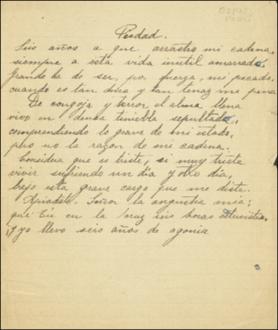 Piedad.
Seis años a que arrastro mi cadena,
siempre a esta vida inútil amarrado,
grande ha de ser, por fuerza, mi pecado,
cuando es tan dura y tan tenaz mi pena
De congoja y terror el alma llena
vivo en tiniebla sepultado,
comprendiendo lo grave de mi estado,
pero no la razón de mi cadena.
Considera que es triste, si muy triste
vivir sufriendo un día y otro día,
bajo esta grave carga que me diste.
Apiádate Señor la angustia mía;
que Tú en la Cruz seis horas estuviste,
y yo llevo seis años de agonía